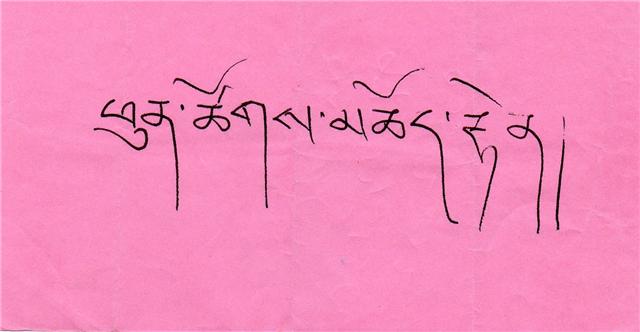 ཕུན་ཚོགས་མཆོད་རྟེན།